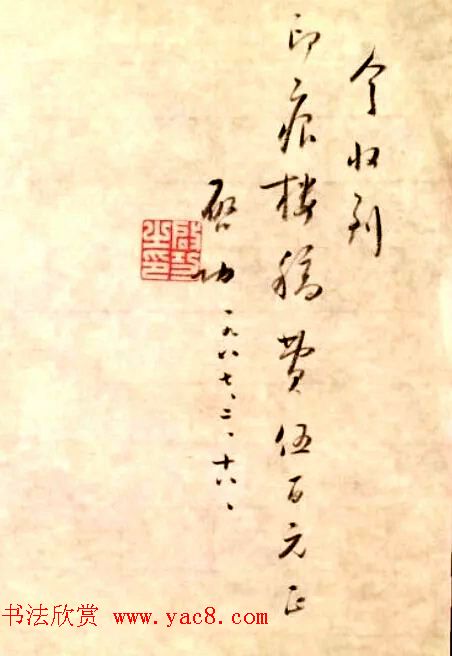 今收到
印痕楼稿费伍百元正
启功 一九八七、二、十六、
启功之印
书法欣赏 www.yac8.com